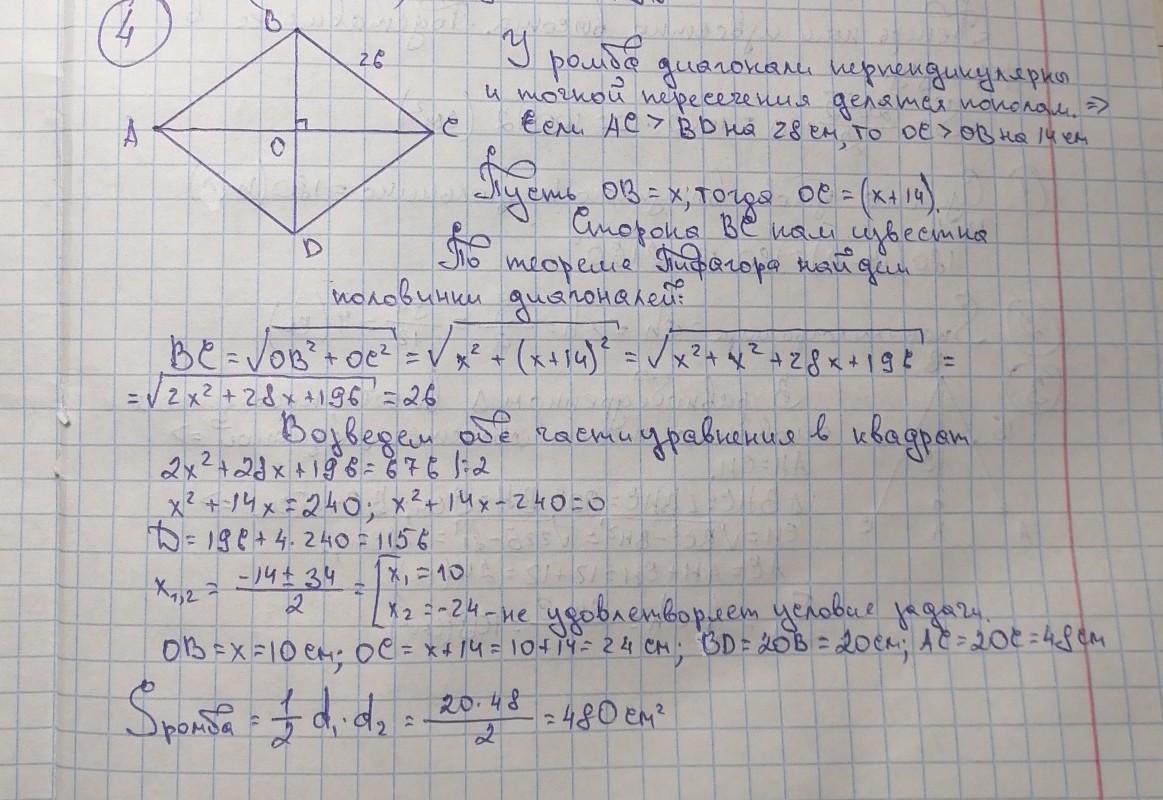 4
B
26
A
C
O
D
У ромба диагонали перпендикулярны
и точкой пересечения делятся пополам. ⇒
Если AC > BD на 28 см, то OC > OB на 14 см
Пусть OB = x, тогда OC = (x+14).
Сторона BC нам известна
По теореме Пифагора найдём
половинки диагоналей:
BC = √(OB² + OC²) = √(x² + (x+14)²) = √(x² + x² + 28x + 196) =
= √(2x² + 28x + 196) = 26
Возведем обе части уравнения в квадрат
2x² + 28x + 196 = 676 |:2
x² + 14x = 240; x² + 14x - 240 = 0
D = 196 + 4·240 = 1156
x₁,₂ = (-14 ± 34)/2 = [x₁ = 10
x₂ = -24 - не удовлетворяет условие задачи.
OB = x = 10 см; OC = x+14 = 10+14 = 24 см; BD = 2OB = 20 см; AC = 2OC = 48 см
Sромба = 1/2 d₁·d₂ = 20·48/2 = 480 см²